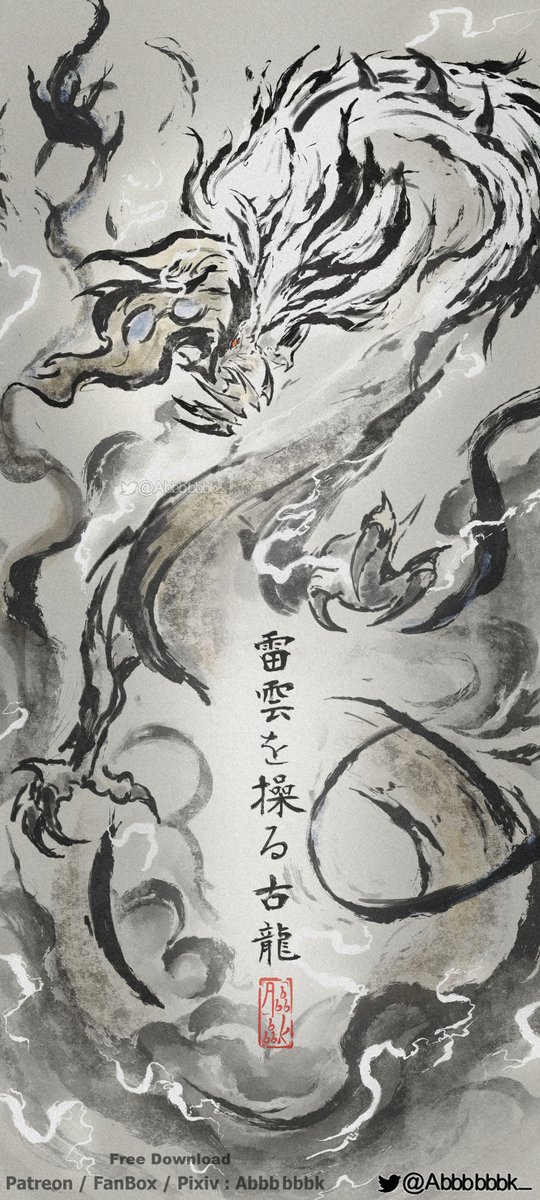 @Abbbbbbk_
雷雲を操る古龍
Abb
bk
bbk
Free Download
Patreon / FanBox / Pixiv : Abbbbbbk
@Abbbbbbk_